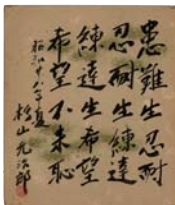 患難生忍耐
忍耐生練達
練達生希望
希望不来恥
昭和廿八年夏
杉山元治郎